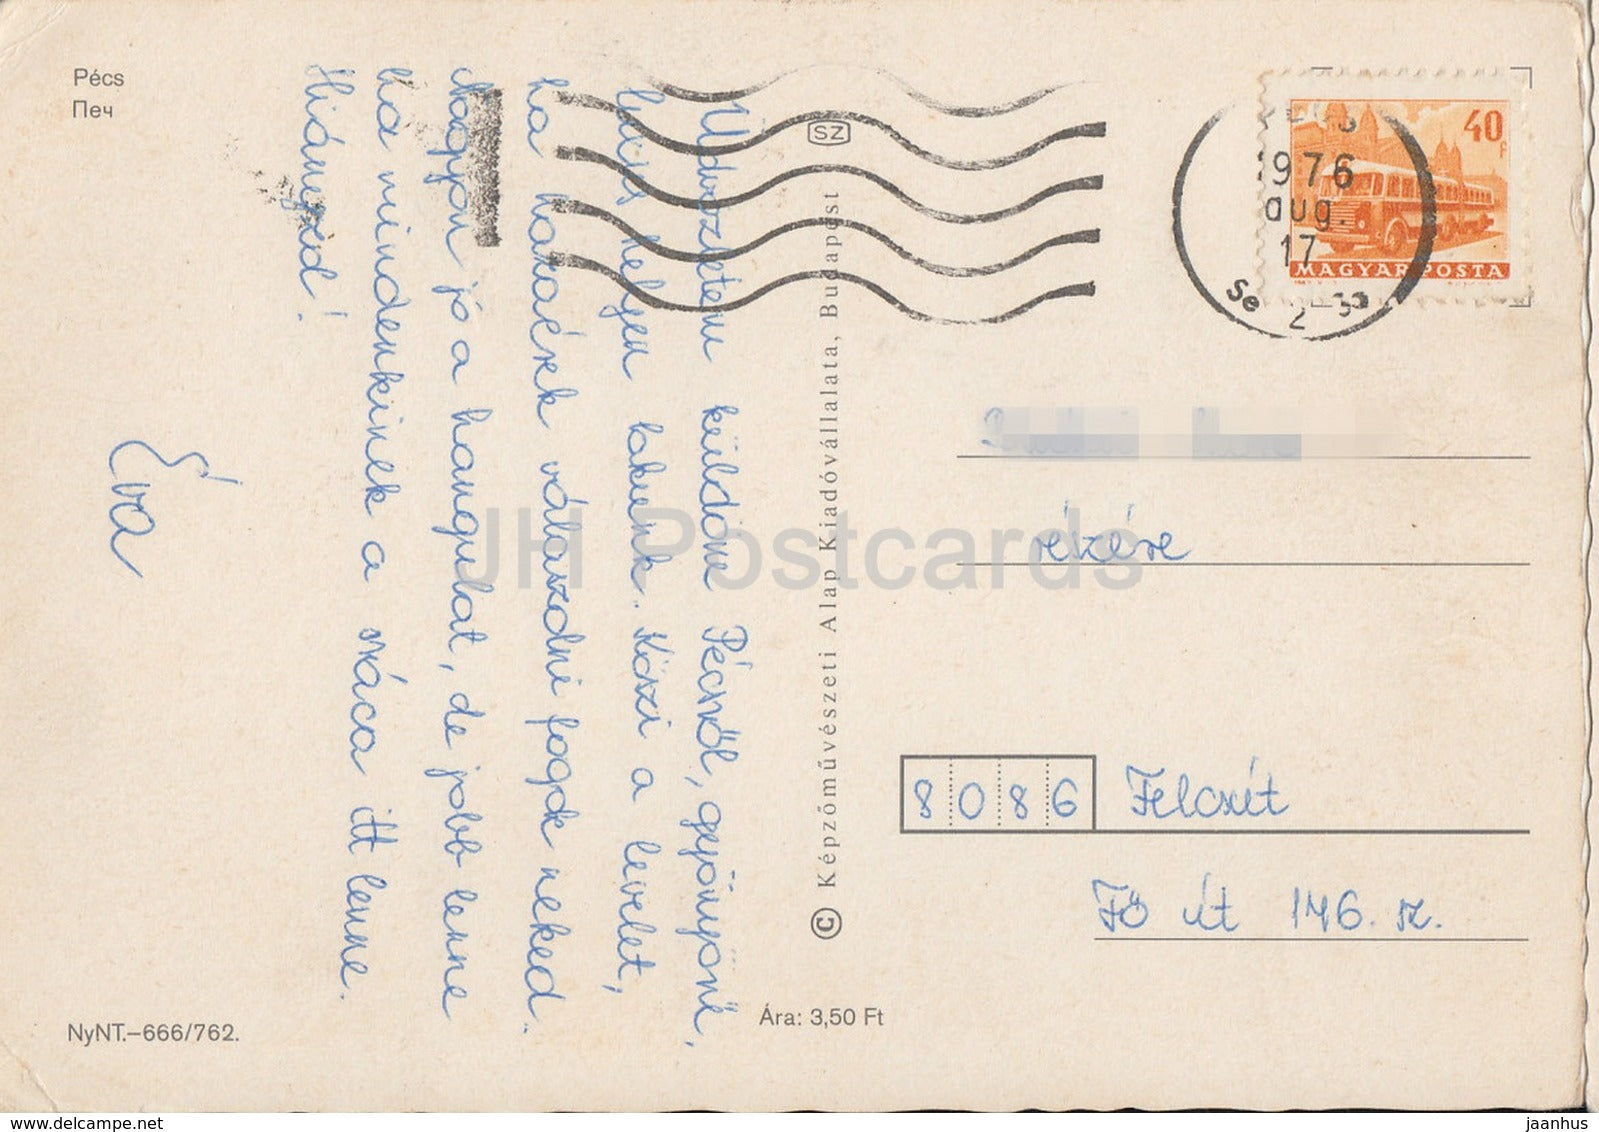 Pécs
Печ
Üdvözletem küldöm Pécsről, gyönyörű,
helyen lakunk. Köszi a levelet,
ha hazaérek válaszolni fogok neked.
Nagyon jó a hangulat, de jobb lenne
ha mindenkinek a sráca itt lenne.
Hiányzod!
Éva
NyNT.–666/762.
Ára: 3,50 Ft
© Képzőművészeti Alap Kiadóvállalata, Budapest
SZ
40f
MAGYAR POSTA
1976
aug.
17
részére
8086 Felcsút
Fő út 146. sz.
JH Postcards
delcampe.net
jaanhus